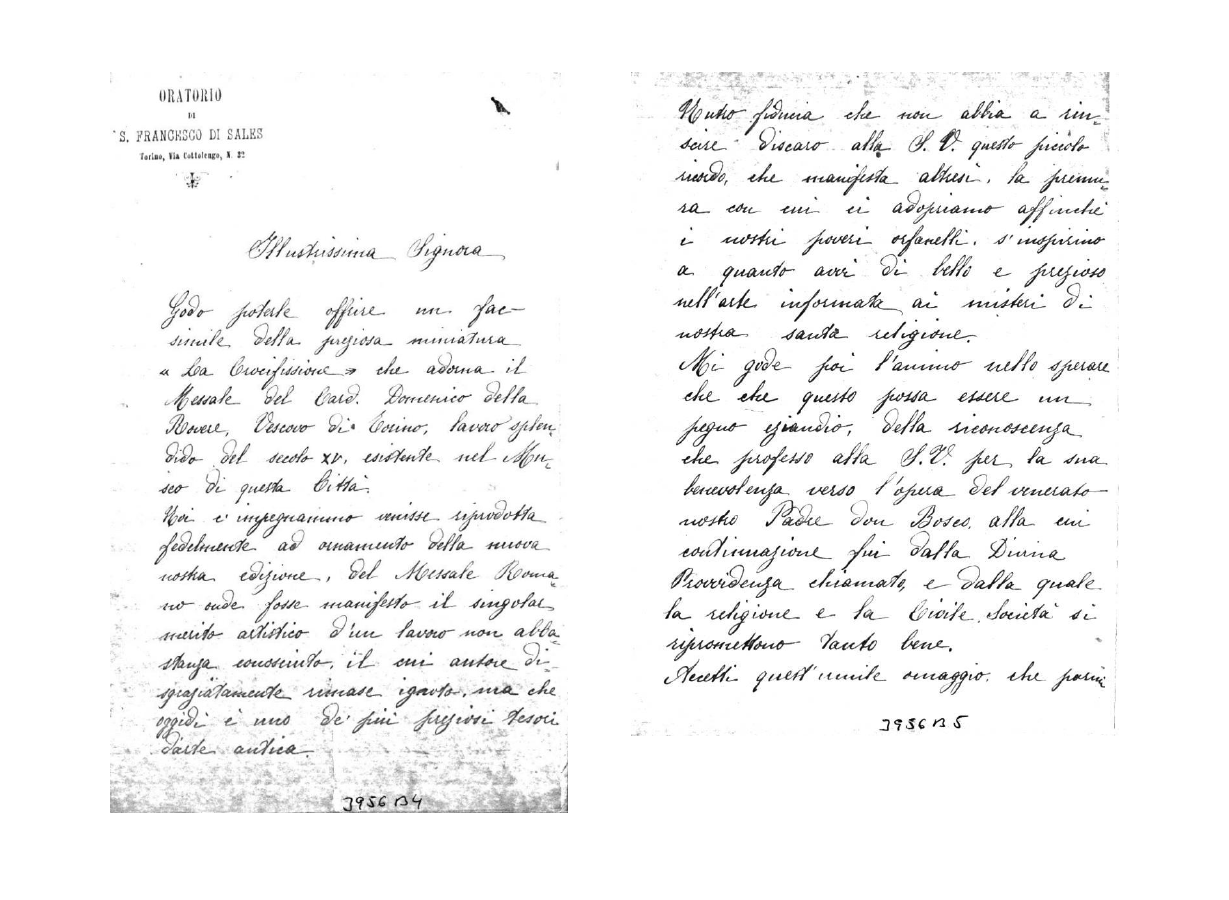 ORATORIO
DI
S. FRANCESCO DI SALES
Torino, Via Cottolengo, N. 32
Illustrissima Signora
Godo poterle offrire un fac-
simile della preziosa miniatura
« La Crocifissione » che adorna il
Messale del Card. Domenico della
Rovere, Vescovo di Torino, lavoro splen-
dido del secolo XV, esistente nel Mu-
seo di questa Città.
Noi c'impegnammo venisse riprodotta
fedelmente ad ornamento della nuova
nostra edizione, del Messale Roma-
no onde fosse manifesto il singolar
merito artistico d'un lavoro non abba-
stanza conosciuto, il cui autore di-
sgraziatamente rimase ignoto, ma che
oggidì è uno de' più preziosi tesori
d'arte antica.
3956 B4
Nutro fiducia che non abbia a riu-
scire discaro alla S. V. questo piccolo
ricordo, che manifesta altresì, la premu-
ra con cui ci adopriamo affinchè
i nostri poveri orfanelli, s'inspirino
a quanto avvi di bello e prezioso
nell'arte informata ai misteri di
nostra santa religione.
Mi gode poi l'animo nello sperare
che che questo possa essere un
pegno eziandio, della riconoscenza
che professo alla S. V. per la sua
benevolenza verso l'opera del venerato
nostro Padre don Bosco, alla cui
continuazione fui dalla Divina
Provvidenza chiamato, e dalla quale
la religione e la Civile Società si
ripromettono tanto bene.
Accetti quest'umile omaggio, che
3956 B 5